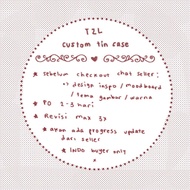 TZL
custom tin case
* sebelum checkout chat seller :
=> design inspo / moodboard
/ tema gambar / warna
* PO 2-3 hari
* Revisi max 3x
* akan ada progress update
dari seller
* INDO buyer only